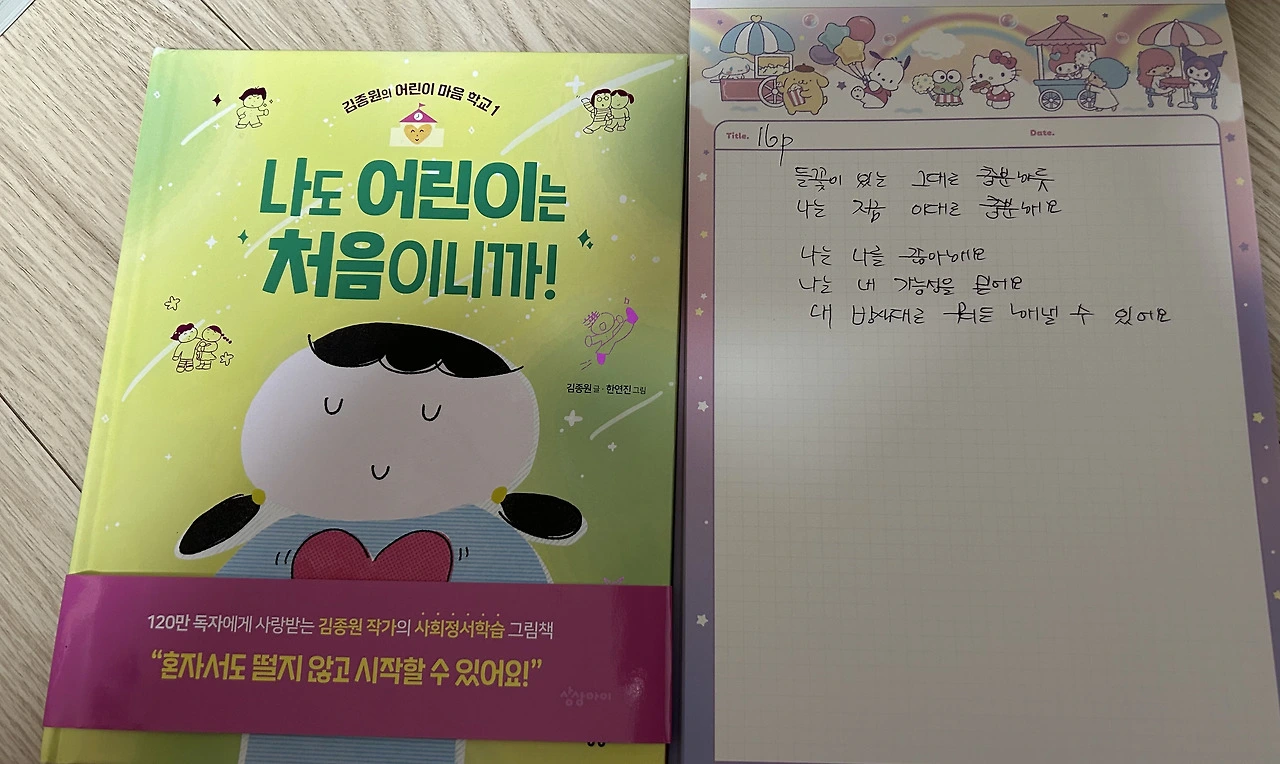 김종원의 어린이 마음 학교 1
나도 어린이는
처음이니까!
김종원 글 · 한연진 그림
120만 독자에게 사랑받는 김종원 작가의 사회정서학습 그림책
“혼자서도 떨지 않고 시작할 수 있어요!”
상상아이
Title. 16p
Date.
들꽃이 있는 그대로 충분하듯
나는 지금 이대로 충분해요
나는 나를 좋아해요
나는 내 가능성을 믿어요
내 방식대로 뭐든 해낼 수 있어요